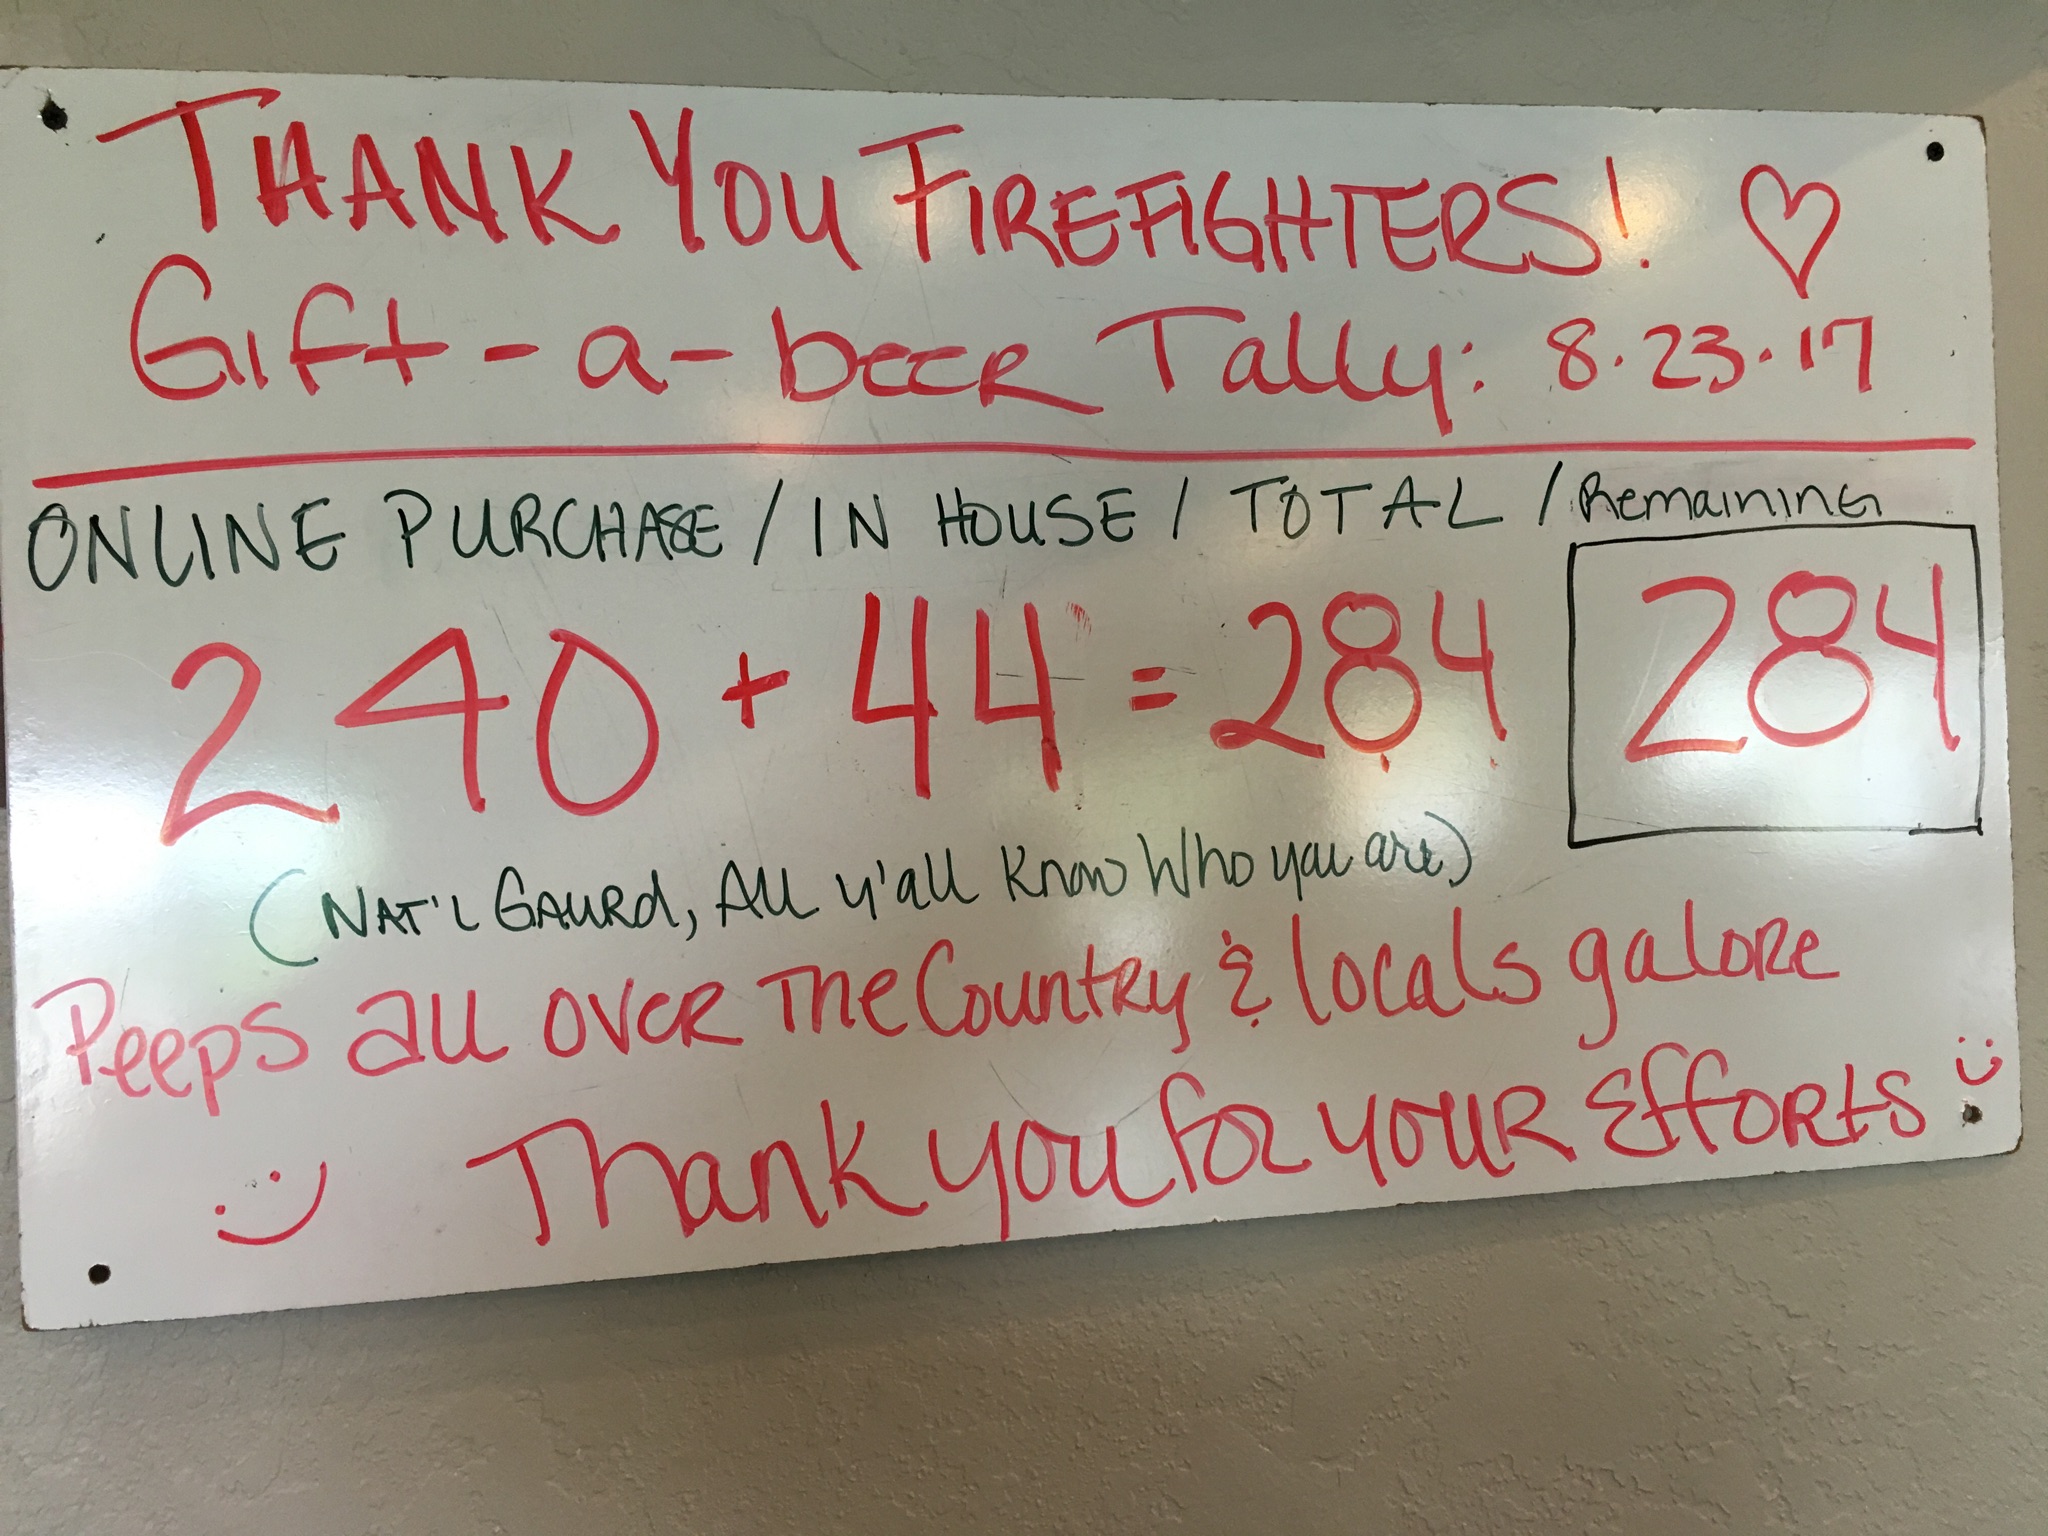 THANK YOU FIREFIGHTERS! ♡
Gift-a-beer Tally: 8.23.17
ONLINE PURCHASE / IN HOUSE / TOTAL / Remaining
240 + 44 = 284 284
(NAT'L GAURD, All y'all Know Who you are)
Peeps all over The Country & locals galore
Thank you for your Efforts